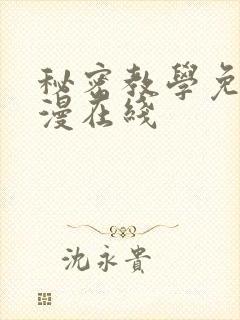 秘密教學免
漫在綫
沈永貴